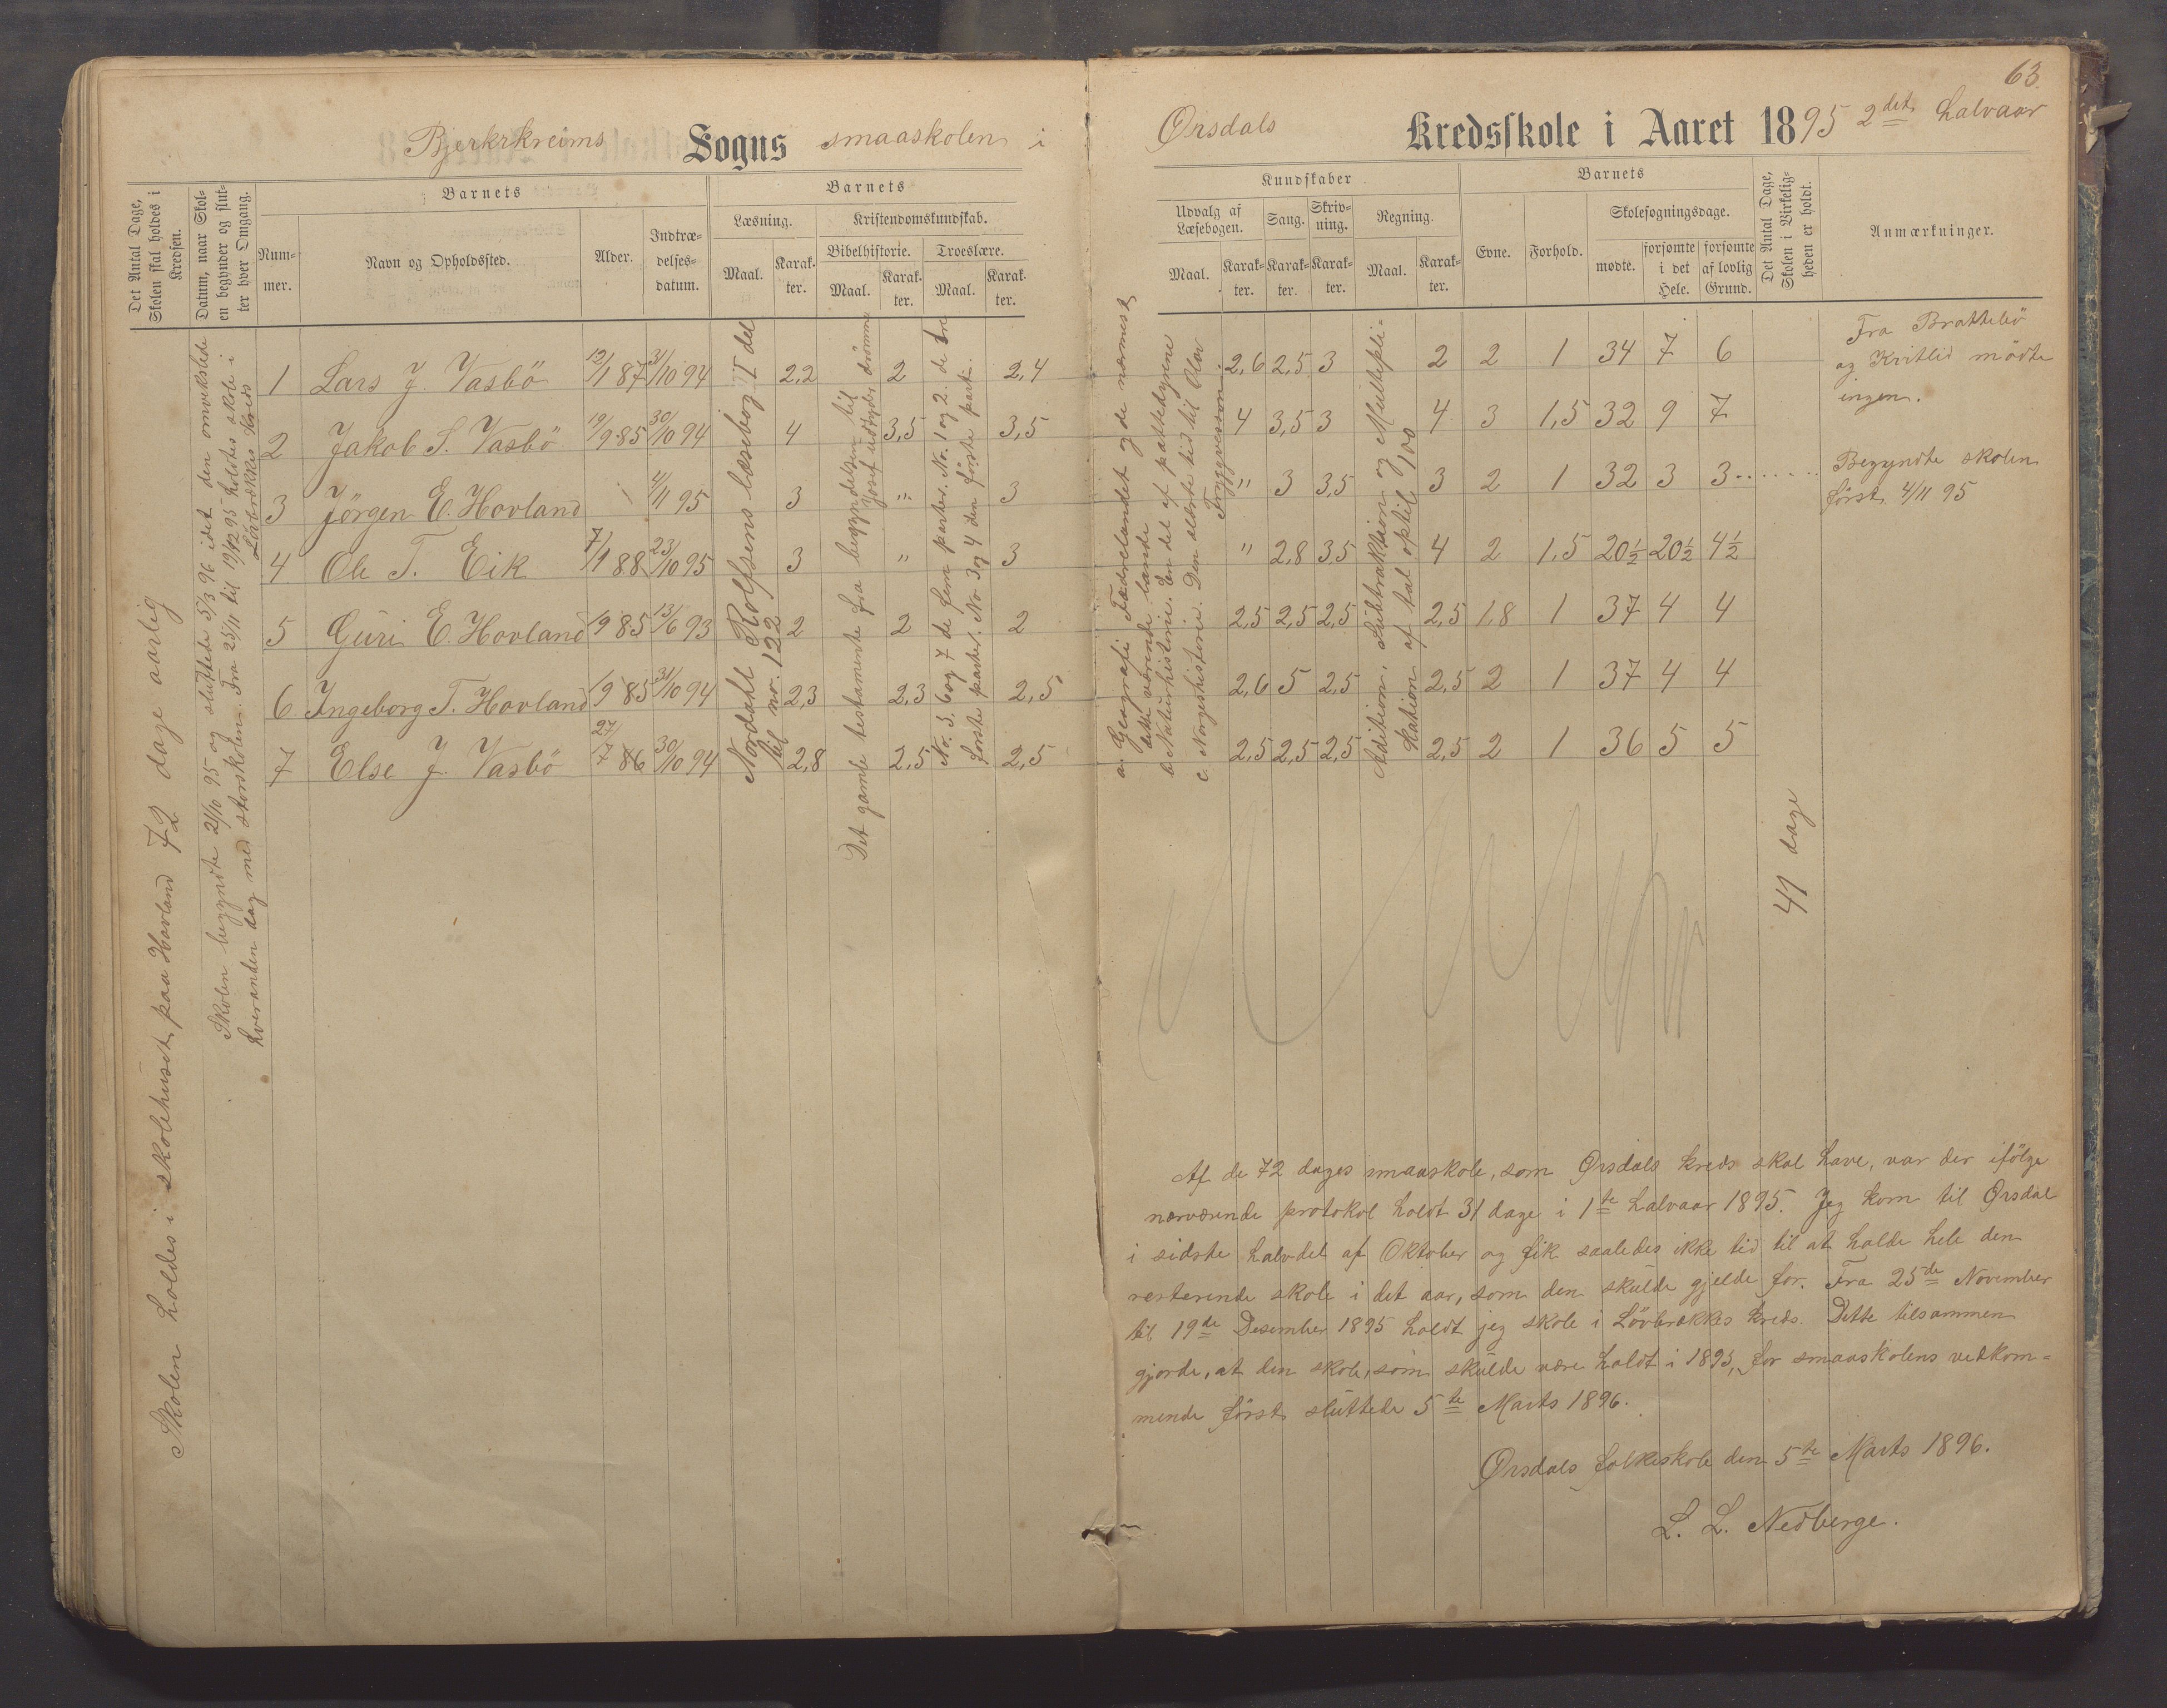 63.
Bjerkrkreims Sogns smaaskolen i Ørsdals Kredsskole i Aaret 1895 2det halvaar
Det Antal Dage, Skolen skal holdes i Kredsen.
Datum, naar Skolen begynder og slutter hver Omgang.
Barnets
Nummer.
Navn og Opholdssted.
Alder.
Indtrædelsesdatum.
Barnets
Læsning.
Maal.
Karakter.
Kristendomskundskab.
Bibelhistorie.
Maal.
Karakter.
Troeslære.
Maal.
Karakter.
Kundskaber
Udvalg af Læsebogen.
Maal.
Karakter.
Sang.
Karakter.
Skrivning.
Karakter.
Regning.
Maal.
Karakter.
Barnets
Evne.
Forhold.
Skolesøgningsdage.
mødte.
forsømte i det Hele.
forsømte af lovlig Grund.
Det Antal Dage, Skolen i Virkeligheden er holdt.
Anmærkninger.
1 Lars J. Vasbö 12/1 87 31/10 94 2,2 2 2,4 2,6 2,5 3 2 2 1 34 7 6
2 Jakob S. Vasbö 19/9 85 30/10 94 4 3,5 3,5 4 3,5 3 4 3 1,5 32 9 7
3 Jörgen E. Hovland 4/11 95 3 " 3 " 3 3,5 3 2 1 32 3 3
4 Ole T. Eik 7/1 88 23/10 95 3 " 3 " 2,8 3,5 4 2 1,5 20½ 20½ 4½
5 Guri E. Hovland 19 85 13/6 93 2 2 2 2,5 2,5 2,5 2,5 1,8 1 37 4 4
6 Ingeborg T. Hovland 19 85 31/10 94 2,3 2,3 2,5 2,6 5 2,5 2,5 2 1 37 4 4
7 Else J. Vasbö 27/7 86 30/10 94 2,8 2,5 2,5 2,5 2,5 2,5 2,5 2 1 36 5 5
Skolen holdes i skolehuset paa Hovland 72 dage aarlig
Skolen begyndte 21/10 95 og sluttede 5/3 96 idet den omvekslede
hveranden dag med storskolen. Fra 25/11 til 19/12 95 holdtes skole i
Lövbrækkes kreds
Nordahl Rolfsens læsebog I del
til no. 122
Det gamle testamente fra begyndelsen til
Josef udtyder drømme
No. 5, 6 og 7 de fem parter. No. 1 og 2. de tre
første parter. No. 3 og 4 den første part.
a. Geografi: Fædrelandet og de nærmest
dette værende lande
b. Naturhistorie. En del af pattedyrene
c. Norgeshistorie. Den ældste tid til Olav
Tryggvesson.
Adition, Subtraktion og Multipli-
kation af tal optil 100
41 dage
Fra Brattebö
og Kvitlid mödte
ingen.
Begyndte skolen
först 4/11 95
Af de 72 dages smaaskole, som Ørsdals kreds skal have, var der ifölge
nærværende protokol holdt 31 dage i 1ste halvaar 1895. Jeg kom til Ørsdal
i sidste halvdel af Oktober og fik saaledes ikke tid til at holde hele den
resterende skole i det aar, som den skulde gjelde for. Fra 25de November
til 19de Desember 1895 holdt jeg skole i Lövbrækkes kreds. Dette tilsammen
gjorde, at den skole, som skulde være holdt i 1895, for smaaskolens vedkom=
mende först sluttede 5te Marts 1896.
Ørsdals folkeskole den 5te Marts 1896.
L. L. Nedberge.